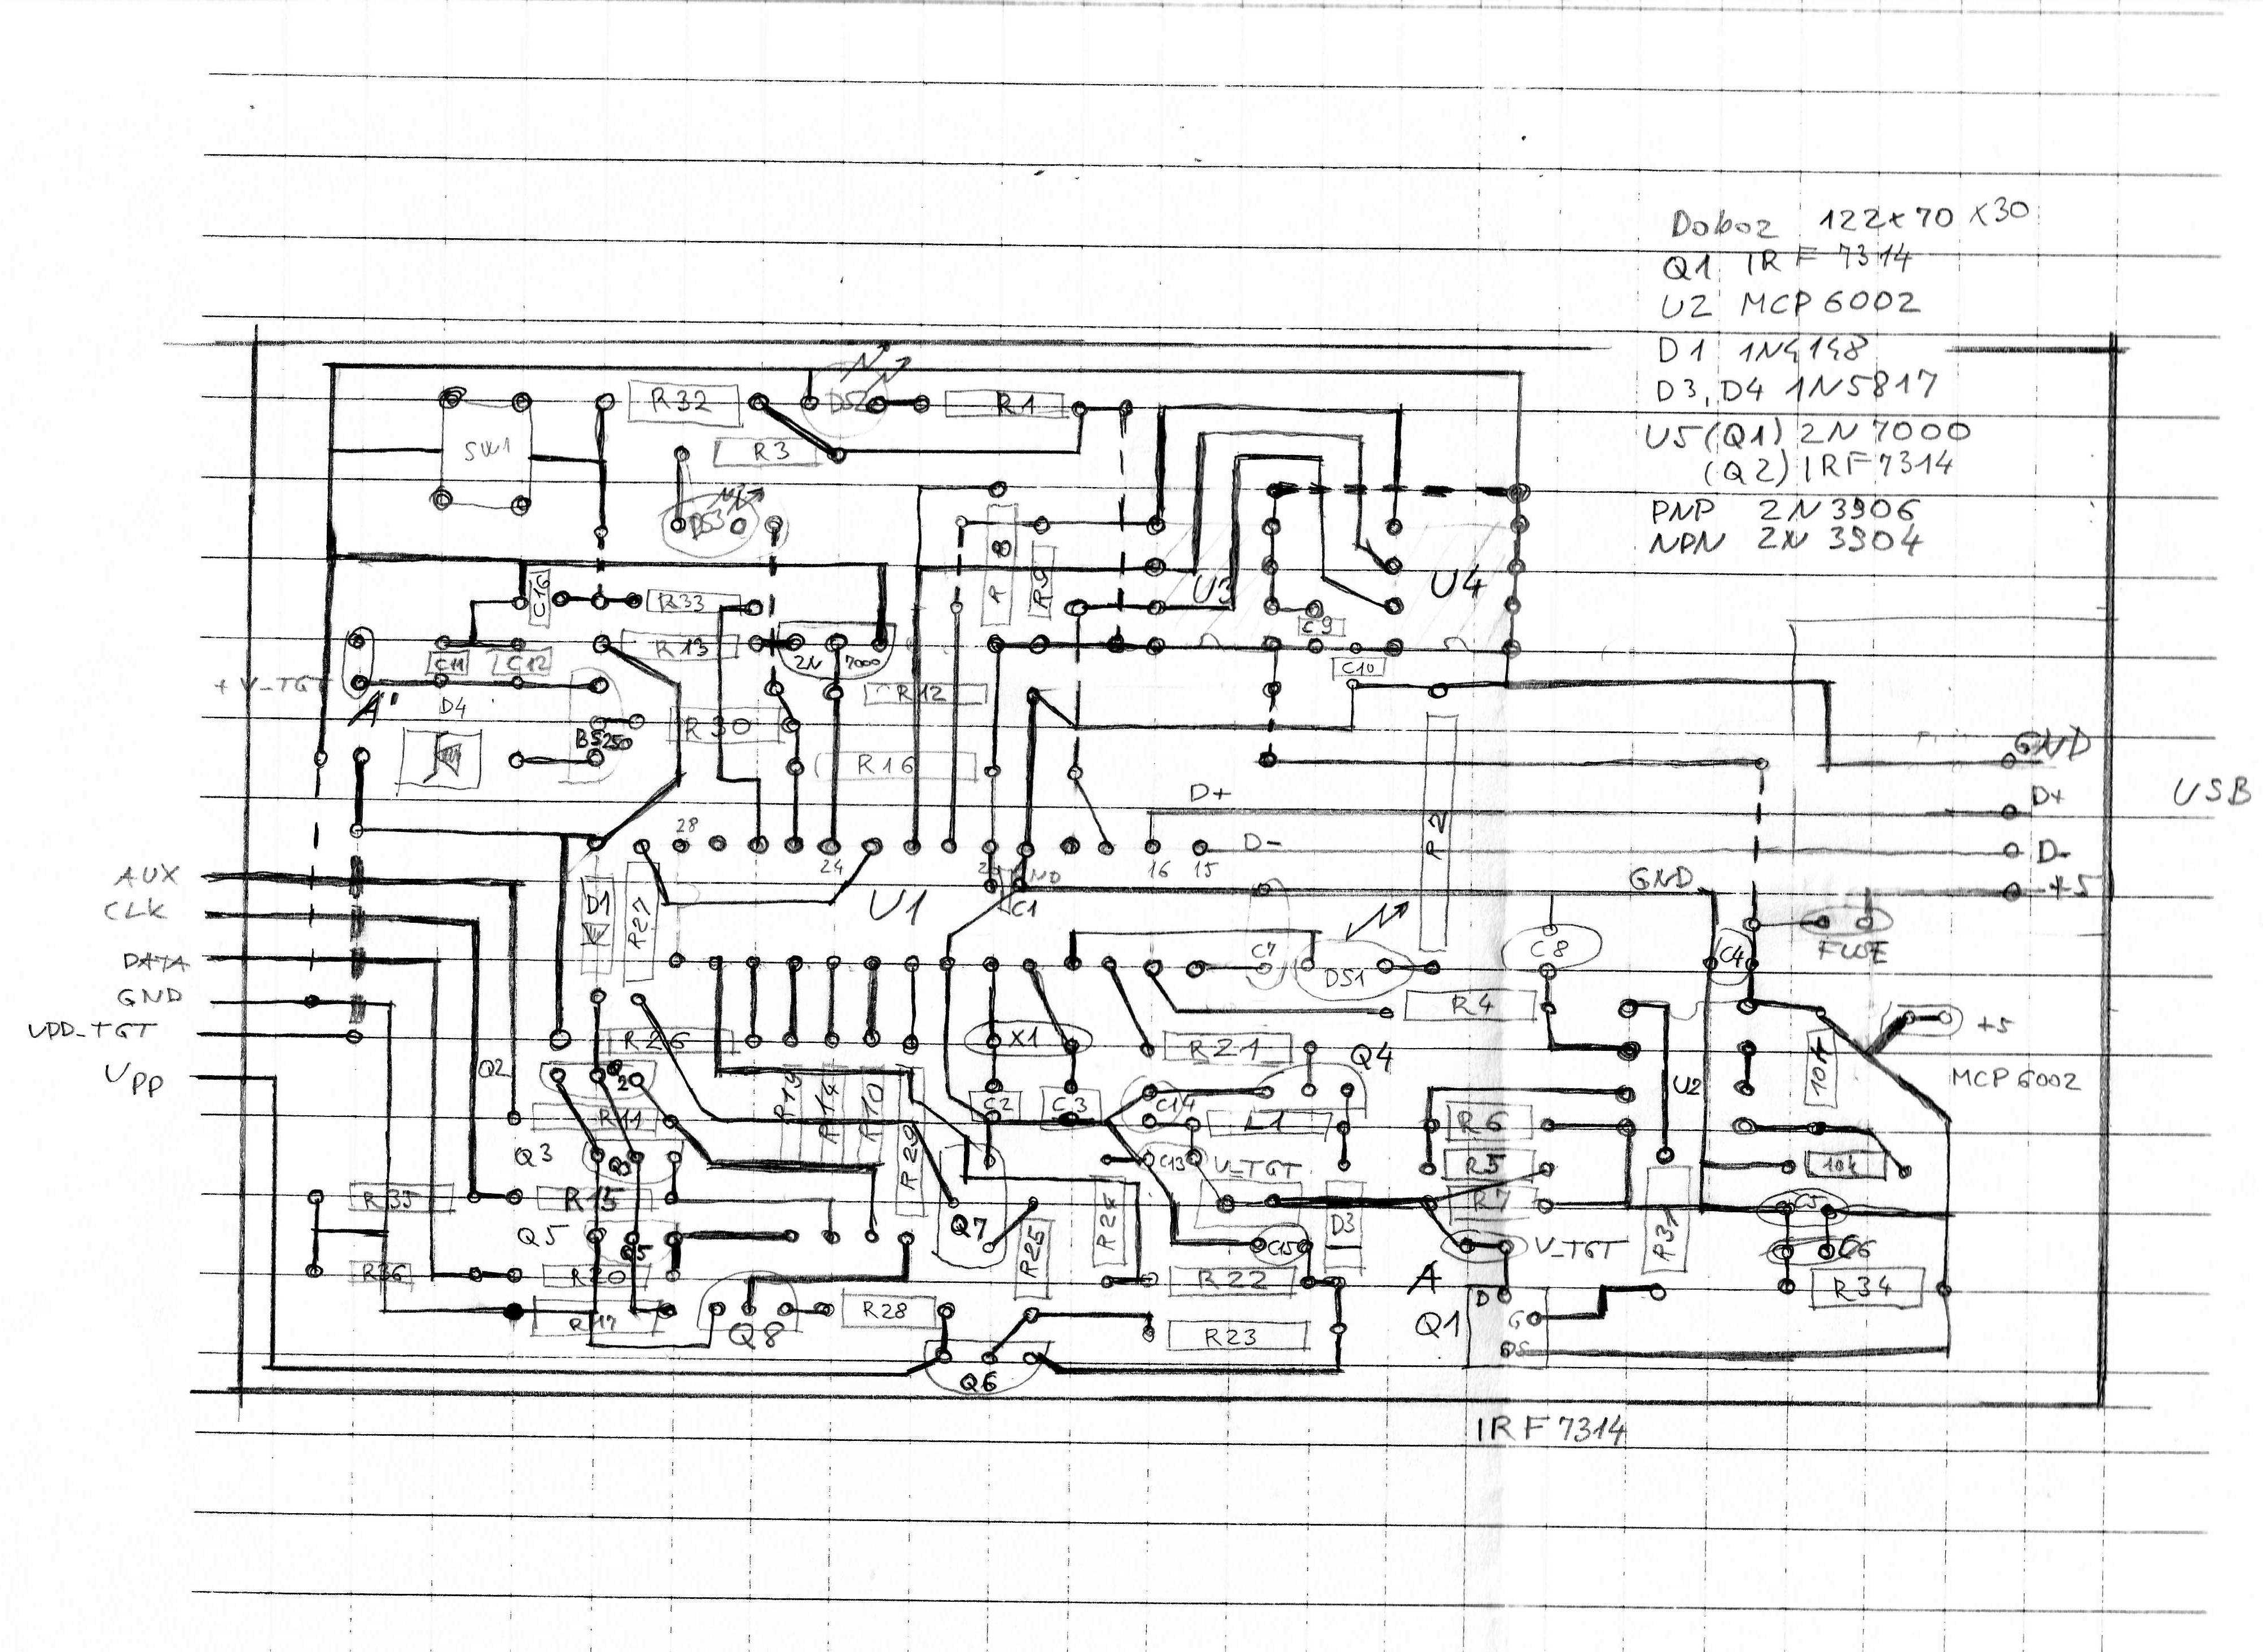 Doboz 122x70x30
Q1 IRF 7314
U2 MCP6002
D1 1N4148
D3, D4 1N5817
U5(Q1) 2N7000
(Q2) IRF7314
PNP 2N3906
NPN 2N3904
R32
DS2
R1
SW1
R3
DS3
R8
R9
U3
U4
C16
R33
C9
C11
C12
R13
2N 7000
C10
+V_TGT
A'
D4
R12
BS250
R30
R16
R2
GND
D+
D+
USB
28
24
16
15
D-
D-
AUX
CLK
GND
+5
D1
R27
U1
C1
GND
DATA
C7
DS1
C8
C4
FUSE
GND
R4
VDD_TGT
R26
X1
R21
Q4
U2
10k
+5
Vpp
Q2
MCP6002
C2
C3
C14
R11
R19
R14
R10
R29
L1
R6
Q3
C13
V_TGT
R5
10k
R35
R15
Q7
R24
R7
C5
Q5
Q5
R25
C15
D3
V_TGT
R31
C6
R36
R20
R22
A
R34
R17
Q8
R28
R23
Q1
D
G
S
Q6
IRF7314